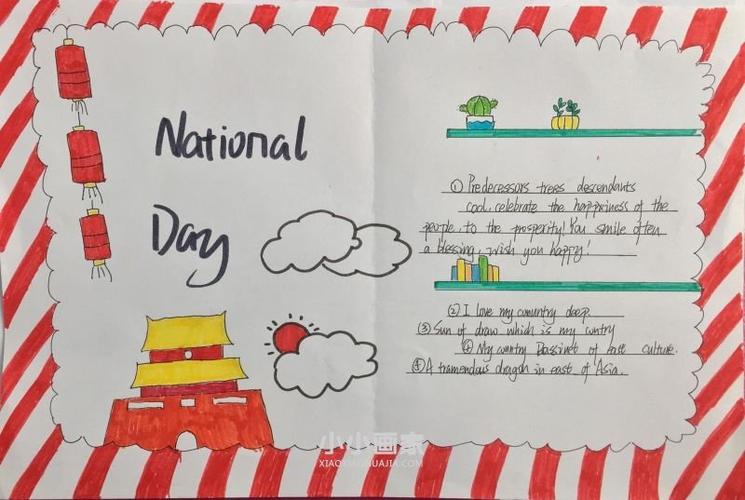 National
Day
① Predecessors trees descendants
cool, celebrate the happiness of the
people, to the prosperity! You smile often
a blessing, wish you happy!
② I love my conuntry deep
③ Sun of draw which is my cuntry
④ My cuntry Bassinet of east culture.
⑤ A tramendous dragon in east of Asia.
小小画家
XIAOXIAOHUAJIA.COM